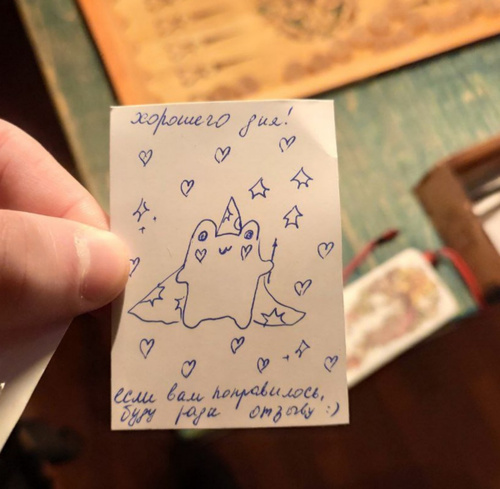 хорошего дня!
если вам понравилось,
буду рада отзыву :)